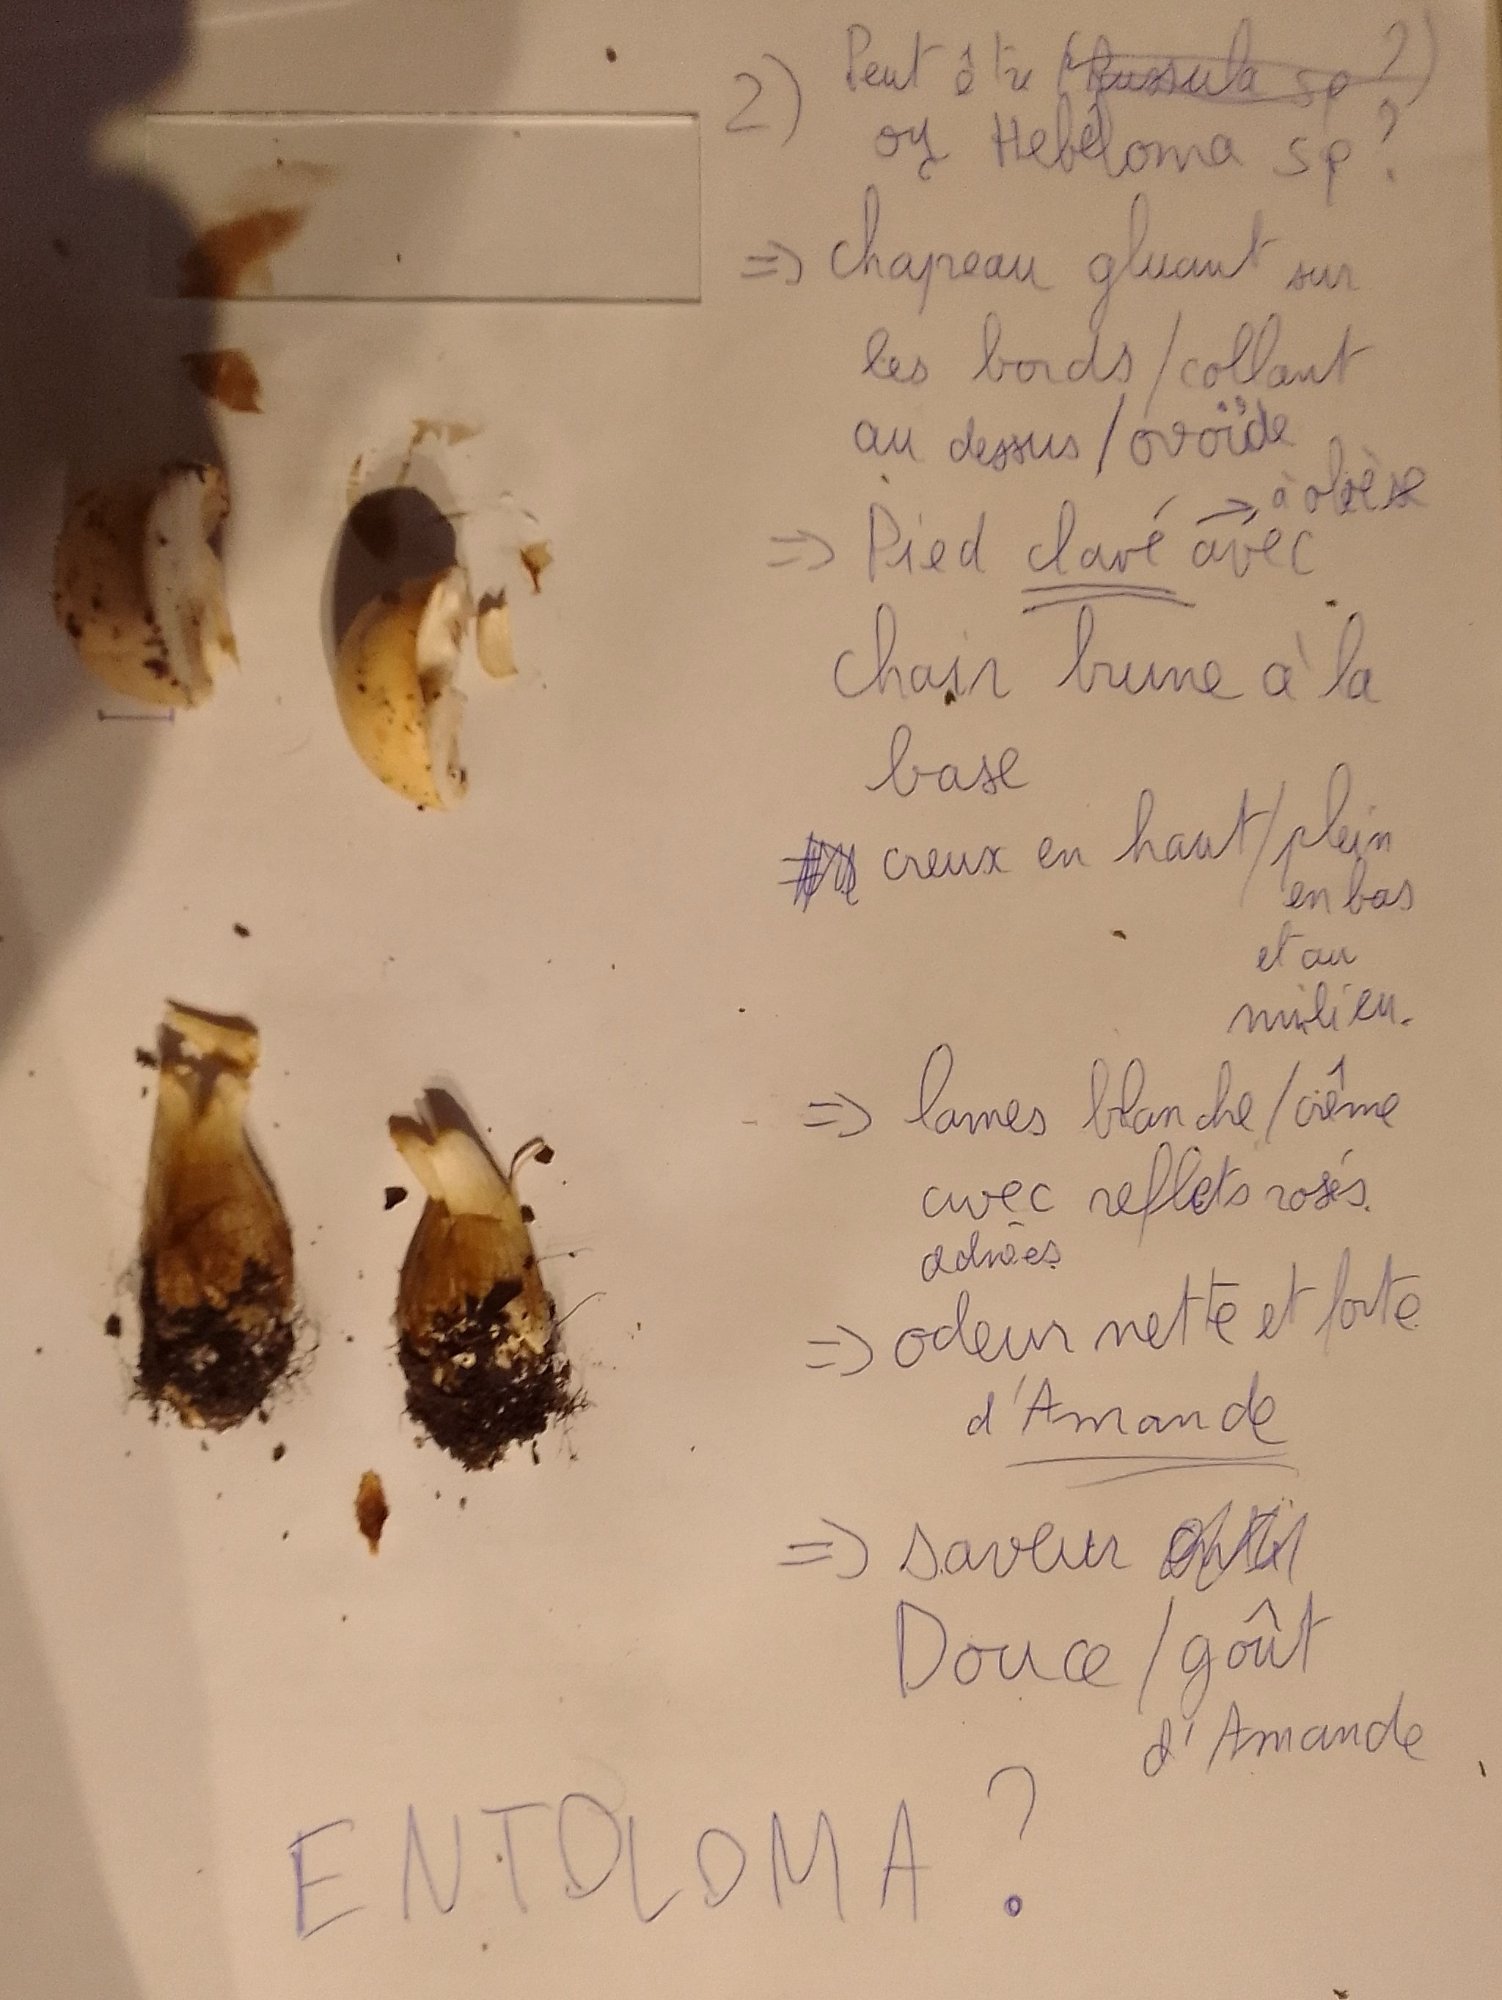 2) Peut être (Russula sp ?)
ou Hebeloma sp ?
=> chapeau gluant sur
les bords / collant
au dessus / ovoïde
=> Pied clavé -> à obèse
avec
chair brune à la
base
creux en haut / plein
en bas
et au
milieu.
=> lames blanche / crême
avec reflets rosés.
adnées
=> odeur nette et forte
d'Amande
=> saveur
Douce / goût
d'Amande
ENTOLOMA ?